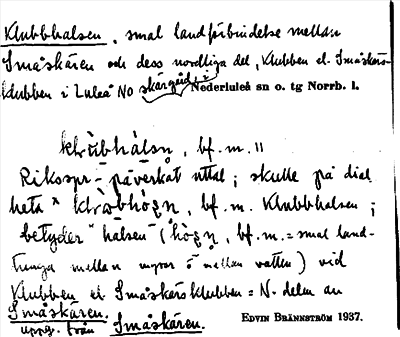 Klubbhalsen, smal landförbindelse mellan
Småskären och dess nordliga del, Klubben el. Småskärs-
klubben i Luleå NO skärgård, i Nederluleå sn o. tg Norrb. l.
bf. m. ||
Rikspr.-påverkat uttal; skulle på dial.
heta bf. m. Klubbhalsen;
betyder "halsen" ( bf. m. = smal land-
tunga mellan myrar o mellan vatten) vid
Klubben el. Småskärsklubben = N. delen av
Småskären.
uppg. från Småskären.
EDVIN BRÄNNSTRÖM 1937.